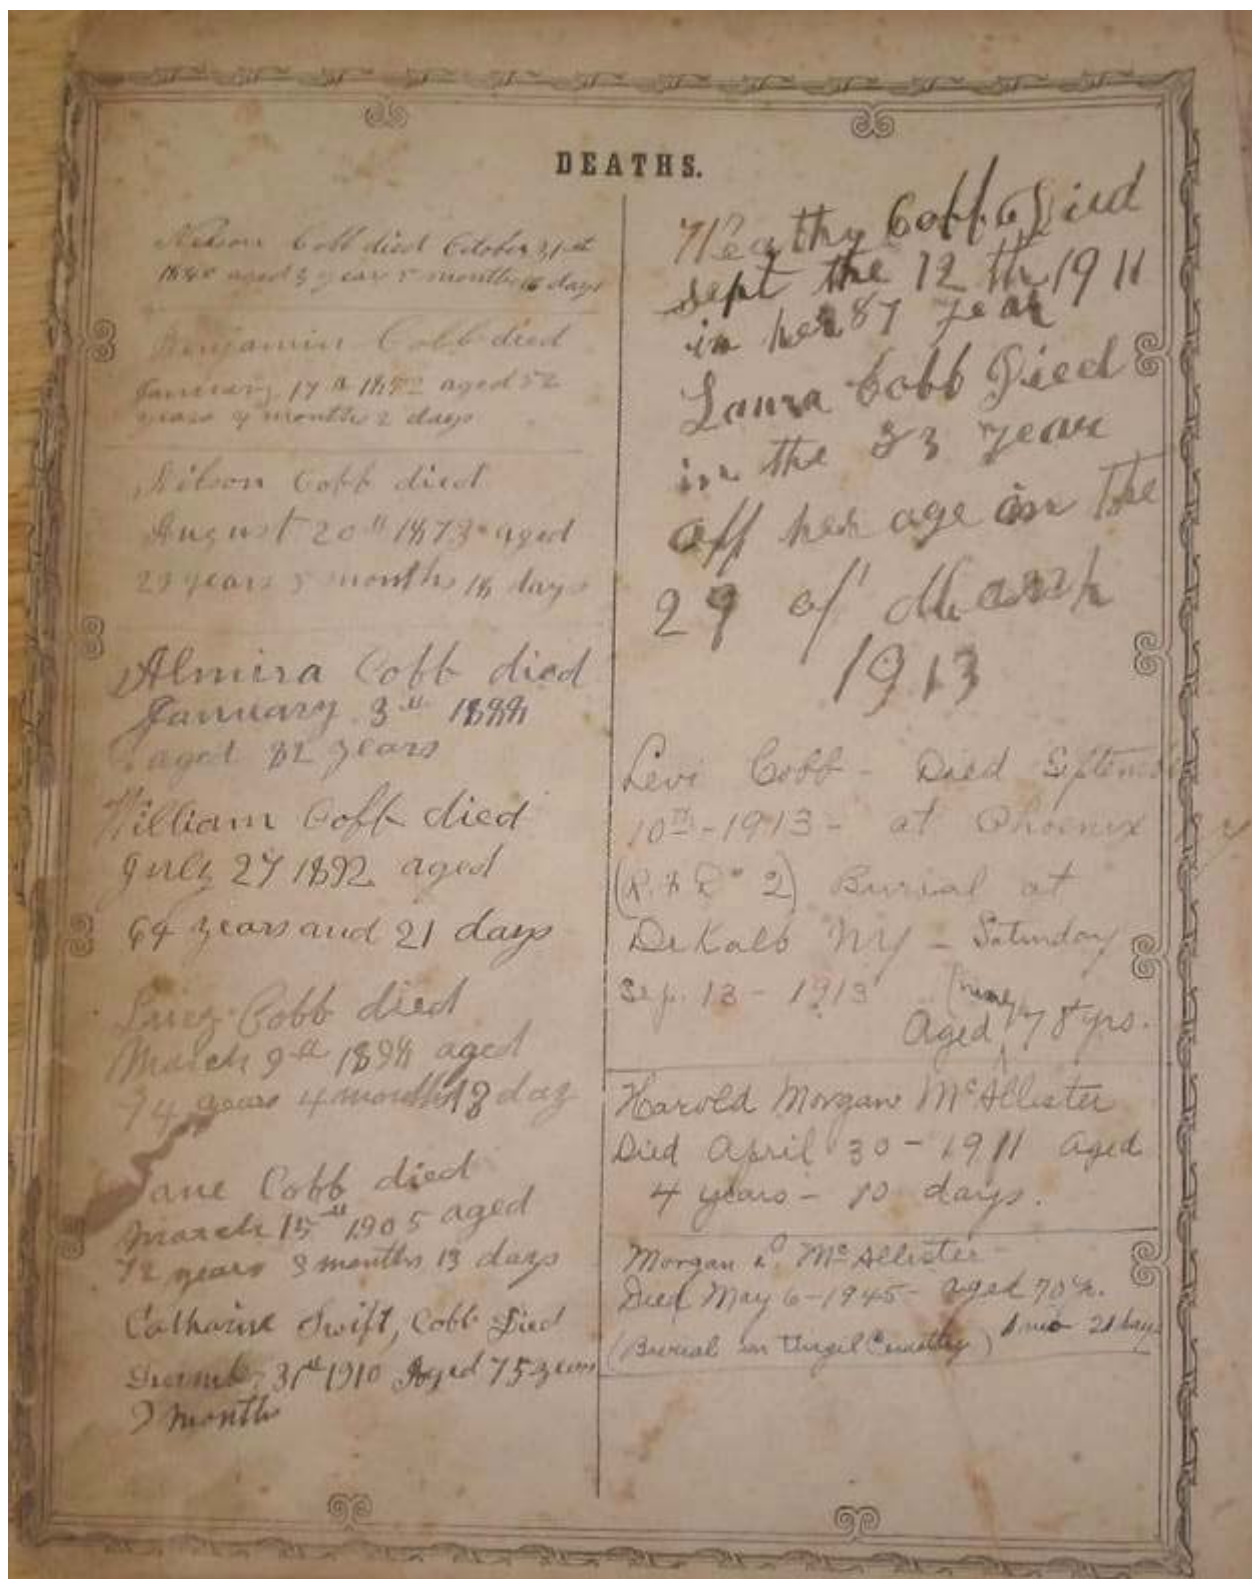 DEATHS.
Cobb died October 31st
aged 3 year 5 months days
Benjamin Cobb died
January 17th aged 52
years 4 months 2 days
Cobb died
August 20th 1873 aged
29 years 5 months 18 days
Almira Cobb died
January 3th
aged 82 years
William Cobb died
July 27 1892 aged
64 years and 21 days
Cobb died
March 9th aged
74 years 4 months 18 day
Jane Cobb died
March 15th 1905 aged
72 years 3 months 13 days
Catharine Swift, Cobb Died
31th 1910 Aged 75 years
months
Cobb Died
sept the 12 th 1911
in her 87 year
Laura Cobb Died
in the year
off her age in the
29 of March
1913
Levi Cobb - Died
10th - 1913 - at Phoenix
Burial at
DeKalb NY - Saturday
Sep. 13 - 1913
Aged 78 yrs.
Harold Morgan McAllister
Died April 30 - 1911 aged
4 years - 10 days.
Morgan McAllister
Died May 6 - 1945 - aged
(Burial in Virgil Cemetery) 21 days